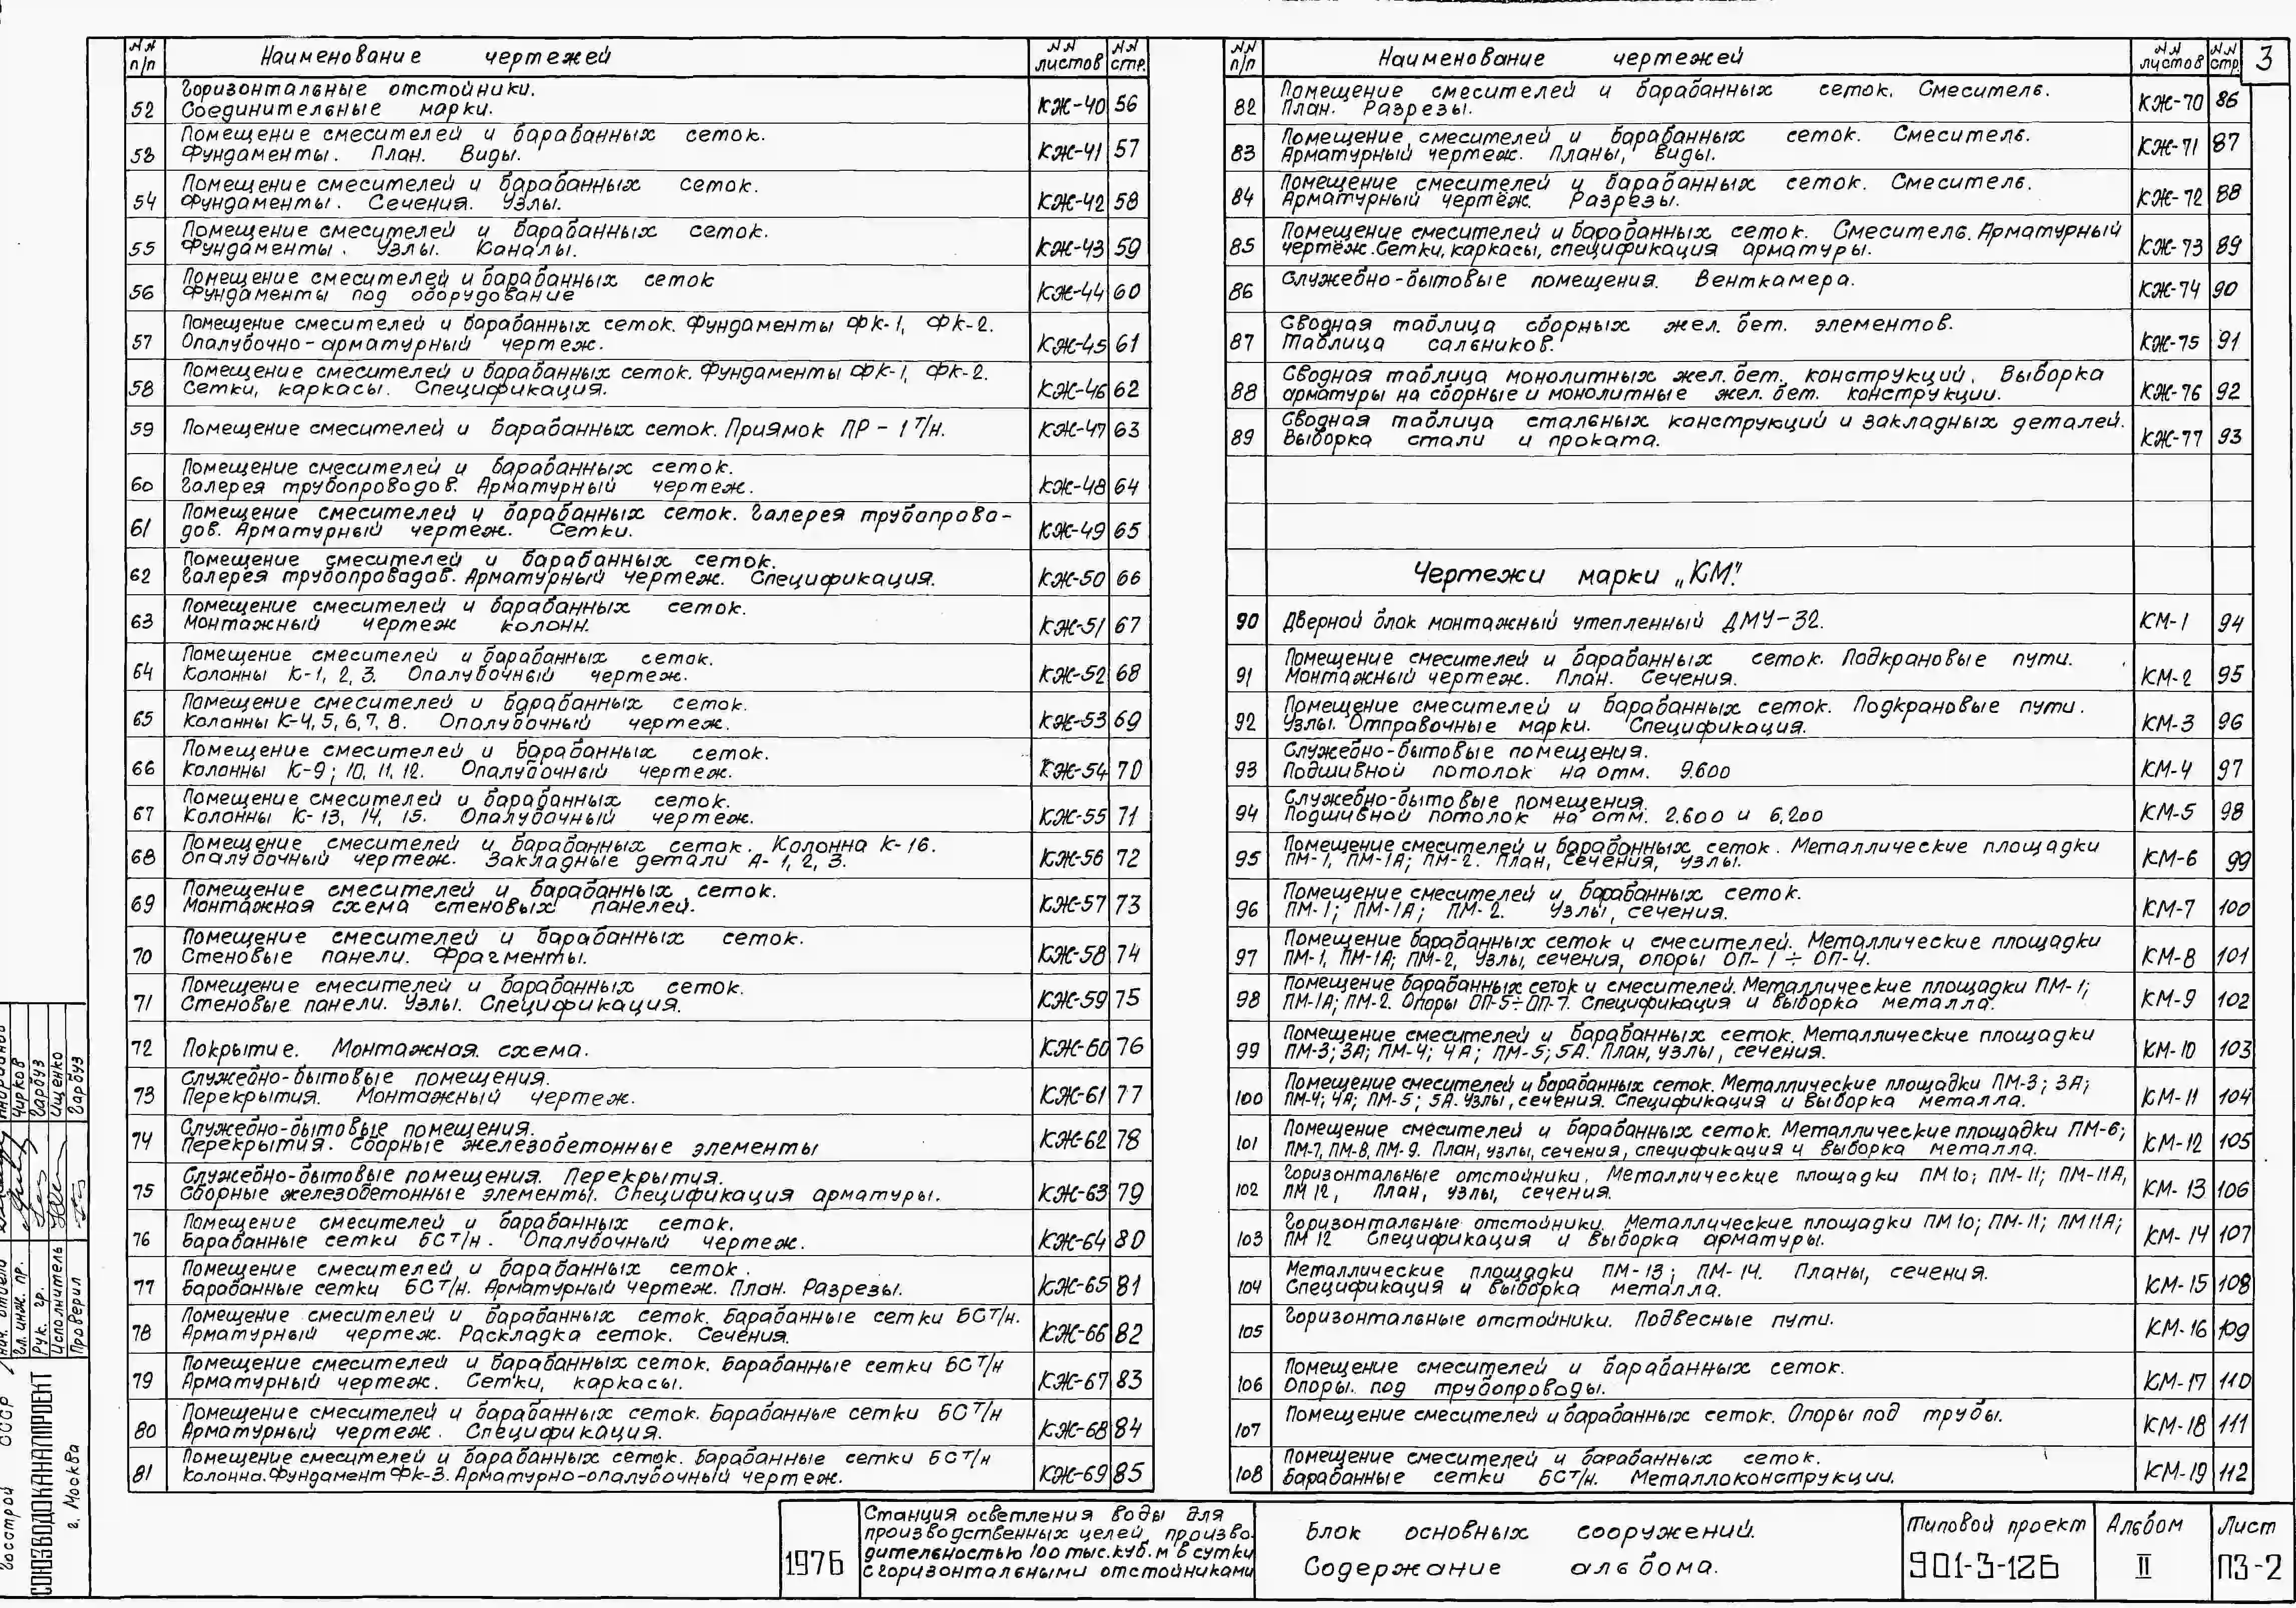 №№ п/п Наименование чертежей №№ листов №№ стр.
52 Горизонтальные отстойники.
Соединительные марки. КЖ-40 56
53 Помещение смесителей и барабанных сеток.
Фундаменты. План. Виды. КЖ-41 57
54 Помещение смесителей и барабанных сеток.
Фундаменты. Сечения. Узлы. КЖ-42 58
55 Помещение смесителей и барабанных сеток.
Фундаменты. Узлы. Каналы. КЖ-43 59
56 Помещение смесителей и барабанных сеток
Фундаменты под оборудование КЖ-44 60
57 Помещение смесителей и барабанных сеток. Фундаменты ФК-1, ФК-2.
Опалубочно-арматурный чертеж. КЖ-45 61
58 Помещение смесителей и барабанных сеток. Фундаменты ФК-1, ФК-2.
Сетки, каркасы. Спецификация. КЖ-46 62
59 Помещение смесителей и барабанных сеток. Приямок ПР-1 т/н. КЖ-47 63
60 Помещение смесителей и барабанных сеток.
Галерея трубопроводов. Арматурный чертеж. КЖ-48 64
61 Помещение смесителей и барабанных сеток. Галерея трубопрово-
дов. Арматурный чертеж. Сетки. КЖ-49 65
62 Помещение смесителей и барабанных сеток.
Галерея трубопроводов. Арматурный чертеж. Спецификация. КЖ-50 66
63 Помещение смесителей и барабанных сеток.
Монтажный чертеж колонн. КЖ-51 67
64 Помещение смесителей и барабанных сеток.
Колонны К-1, 2, 3. Опалубочный чертеж. КЖ-52 68
65 Помещение смесителей и барабанных сеток.
Колонны К-4, 5, 6, 7, 8. Опалубочный чертеж. КЖ-53 69
66 Помещение смесителей и барабанных сеток.
Колонны К-9; 10, 11, 12. Опалубочный чертеж. КЖ-54 70
67 Помещение смесителей и барабанных сеток.
Колонны К-13, 14, 15. Опалубочный чертеж. КЖ-55 71
68 Помещение смесителей и барабанных сеток. Колонна К-16.
Опалубочный чертеж. Закладные детали А-1, 2, 3. КЖ-56 72
69 Помещение смесителей и барабанных сеток.
Монтажная схема стеновых панелей. КЖ-57 73
70 Помещение смесителей и барабанных сеток.
Стеновые панели. Фрагменты. КЖ-58 74
71 Помещение смесителей и барабанных сеток.
Стеновые панели. Узлы. Спецификация. КЖ-59 75
72 Покрытие. Монтажная схема. КЖ-60 76
73 Служебно-бытовые помещения.
Перекрытия. Монтажный чертеж. КЖ-61 77
74 Служебно-бытовые помещения.
Перекрытия. Сборные железобетонные элементы КЖ-62 78
75 Служебно-бытовые помещения. Перекрытия.
Сборные железобетонные элементы. Спецификация арматуры. КЖ-63 79
76 Помещение смесителей и барабанных сеток.
Барабанные сетки БС т/н. Опалубочный чертеж. КЖ-64 80
77 Помещение смесителей и барабанных сеток.
Барабанные сетки БС т/н. Арматурный чертеж. План. Разрезы. КЖ-65 81
78 Помещение смесителей и барабанных сеток. Барабанные сетки БС т/н.
Арматурный чертеж. Раскладка сеток. Сечения. КЖ-66 82
79 Помещение смесителей и барабанных сеток. Барабанные сетки БС т/н
Арматурный чертеж. Сетки, каркасы. КЖ-67 83
80 Помещение смесителей и барабанных сеток. Барабанные сетки БС т/н
Арматурный чертеж. Спецификация. КЖ-68 84
81 Помещение смесителей и барабанных сеток. Барабанные сетки БС т/н
Колонна. Фундамент ФК-3. Арматурно-опалубочный чертеж. КЖ-69 85
№№ п/п Наименование чертежей №№ листов №№ стр. 3
82 Помещение смесителей и барабанных сеток. Смеситель.
План. Разрезы. КЖ-70 86
83 Помещение смесителей и барабанных сеток. Смеситель.
Арматурный чертеж. Планы, виды. КЖ-71 87
84 Помещение смесителей и барабанных сеток. Смеситель.
Арматурный чертёж. Разрезы. КЖ-72 88
85 Помещение смесителей и барабанных сеток. Смеситель. Арматурный
чертёж. Сетки, каркасы, спецификация арматуры. КЖ-73 89
86 Служебно-бытовые помещения. Венткамера. КЖ-74 90
87 Сводная таблица сборных жел. бет. элементов.
Таблица сальников. КЖ-75 91
88 Сводная таблица монолитных жел. бет. конструкций. Выборка
арматуры на сборные и монолитные жел. бет. конструкции. КЖ-76 92
89 Сводная таблица стальных конструкций и закладных деталей.
Выборка стали и проката. КЖ-77 93
Чертежи марки „КМ".
90 Дверной блок монтажный утепленный ДМУ-32. КМ-1 94
91 Помещение смесителей и барабанных сеток. Подкрановые пути.
Монтажный чертеж. План. Сечения. КМ-2 95
92 Помещение смесителей и барабанных сеток. Подкрановые пути.
Узлы. Отправочные марки. Спецификация. КМ-3 96
93 Служебно-бытовые помещения.
Подшивной потолок на отм. 9.600 КМ-4 97
94 Служебно-бытовые помещения.
Подшивной потолок на отм. 2.600 и 6.200 КМ-5 98
95 Помещение смесителей и барабанных сеток. Металлические площадки
ПМ-1, ПМ-1А; ПМ-2. План, сечения, узлы. КМ-6 99
96 Помещение смесителей и барабанных сеток.
ПМ-1; ПМ-1А; ПМ-2. Узлы, сечения. КМ-7 100
97 Помещение барабанных сеток и смесителей. Металлические площадки
ПМ-1, ПМ-1А; ПМ-2, Узлы, сечения, опоры ОП-1÷ОП-4. КМ-8 101
98 Помещение барабанных сеток и смесителей. Металлические площадки ПМ-1;
ПМ-1А; ПМ-2. Опоры ОП-5÷ОП-7. Спецификация и выборка металла. КМ-9 102
99 Помещение смесителей и барабанных сеток. Металлические площадки
ПМ-3; 3А; ПМ-4; 4А; ПМ-5; 5А. План, узлы, сечения. КМ-10 103
100 Помещение смесителей и барабанных сеток. Металлические площадки ПМ-3; 3А;
ПМ-4; 4А; ПМ-5; 5А. Узлы, сечения. Спецификация и выборка металла. КМ-11 104
101 Помещение смесителей и барабанных сеток. Металлические площадки ПМ-6;
ПМ-7, ПМ-8, ПМ-9. План, узлы, сечения, спецификация и выборка металла. КМ-12 105
102 Горизонтальные отстойники. Металлические площадки ПМ 10; ПМ-11; ПМ-11А,
ПМ 12, План, узлы, сечения. КМ-13 106
103 Горизонтальные отстойники. Металлические площадки ПМ 10; ПМ-11; ПМ 11А;
ПМ 12 Спецификация и выборка арматуры. КМ-14 107
104 Металлические площадки ПМ-13; ПМ-14. Планы, сечения.
Спецификация и выборка металла. КМ-15 108
105 Горизонтальные отстойники. Подвесные пути. КМ-16 109
106 Помещение смесителей и барабанных сеток.
Опоры под трубопроводы. КМ-17 110
107 Помещение смесителей и барабанных сеток. Опоры под трубы. КМ-18 111
108 Помещение смесителей и барабанных сеток.
Барабанные сетки БС т/н. Металлоконструкции. КМ-19 112
1976
Станция осветления воды для
производственных целей, произво-
дительностью 100 тыс. куб. м в сутки
с горизонтальными отстойниками
Блок основных сооружений.
Содержание альбома.
Типовой проект
901-3-126
Альбом
II
Лист
ПЗ-2
Госстрой СССР
СОЮЗВОДОКАНАЛПРОЕКТ
г. Москва
Гл. инж. пр. Чирков
Рук. гр. Гарбуз
Исполнитель Ищенко
Проверил Гарбуз